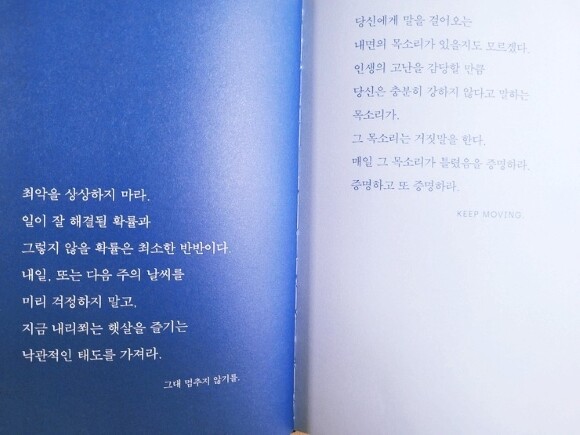 최악을 상상하지 마라.
일이 잘 해결될 확률과
그렇지 않을 확률은 최소한 반반이다.
내일, 또는 다음 주의 날씨를
미리 걱정하지 말고,
지금 내리쬐는 햇살을 즐기는
낙관적인 태도를 가져라.
그대 멈추지 않기를.
당신에게 말을 걸어오는
내면의 목소리가 있을지도 모르겠다.
인생의 고난을 감당할 만큼
당신은 충분히 강하지 않다고 말하는
목소리가.
그 목소리는 거짓말을 한다.
매일 그 목소리가 틀렸음을 증명하라.
증명하고 또 증명하라.
KEEP MOVING.